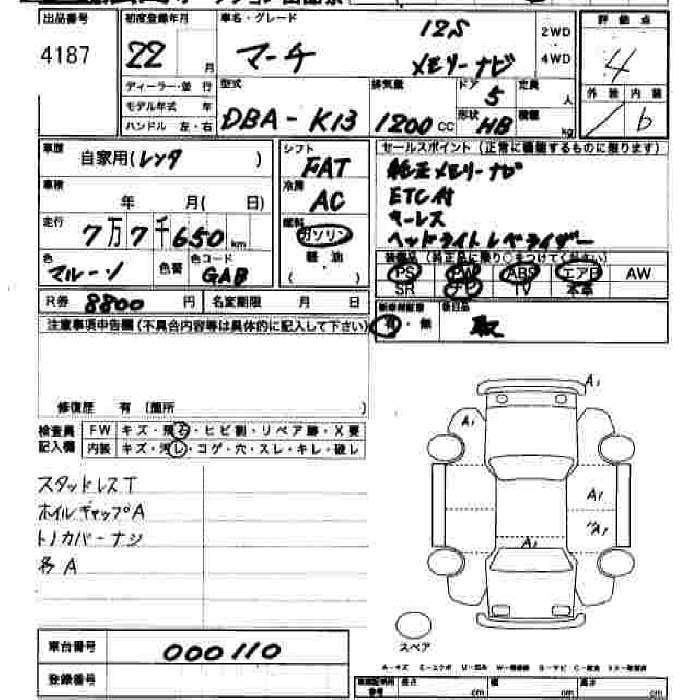 出品番号 4187
初度登録年月 22 月
車名・グレード マーチ 12S メモリーナビ
2WD
4WD
評価点 4
外装 内装 B
ディーラー・並行
モデル年式 年
ハンドル 左・右
型式 DBA-K13
排気量 1200 cc
ドア 5
形状 HB
定員 人
積載 kg
車歴 自家用(レンタ )
車検 年 月( 日)
走行 7万7千650 km
色 マルーン 色替 色コード GAB
シフト FAT
冷房 AC
燃料 ガソリン
軽油
( )
セールスポイント(正常に機能するものに限ります)
純正メモリーナビ
ETC付
キーレス
ヘッドライトレベライザー
装備品(純正品に限り○をつけてください)
PS PW ABS エアB AW
SR ナビ TV 本革
R券 8800 円 名変期限 月 日
新車保証書 有・無 後日品 取
注意事項申告欄(不具合内容等は具体的に記入して下さい)
修復歴 有(箇所 )
検査員記入欄
FW キズ・飛石・ヒビ割・リペア跡・X要
内装 キズ・汚レ・コゲ・穴・スレ・キレ・破レ
スタッドレスT
ホイルキャップA
トノカバーナシ
各A
A1
A1
A1
"A1
A1
スペア
車台番号 000110
登録番号
長さ cm 幅 cm 高さ cm